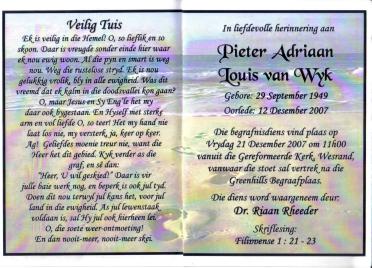 Veilig Tuis
Ek is veilig in die Hemel! O, so lieflik en so
skoon. Daar is vreugde sonder einde hier waar
ek nou ewig woon. Al die pyn en smart is weg
nou. Weg die rustelose stryd. Ek is nou
gelukkig vrolik, bly in alle ewigheid. Was dit
vreemd dat ek kalm in die doodsvallei kon gaan?
O, maar Jesus en Sy Eng'le het my
daar ook bygestaan. En Hyself met sterke
arm en vol liefde O, so teer! Het my hand nie
laat los nie, my versterk, ja, keer op keer.
Ag! Geliefdes moenie treur nie, want die
Heer het dit gebied. Kyk verder as die
graf, en sê dan:
"Heer, U wil geskied!" Daar is vir
julle baie werk nog, en beperk is ook jul tyd.
Doen dit nou terwyl jul kans het, voor jul
land in die ewigheid. As jul lewenstaak
voldaan is, sal Hy jul ook hierheen lei.
O, die soete weer-ontmoeting!
En dan nooit-meer, nooit-meer skei.
In liefdevolle herinnering aan
Pieter Adriaan
Louis van Wyk
Gebore: 29 September 1949
Oorlede: 12 Desember 2007
Die begrafnisdiens vind plaas op
Vrydag 21 Desember 2007 om 11h00
vanuit die Gereformeerde Kerk, Wesrand,
vanwaar die stoet sal vertrek na die
Greenhills Begraafplaas.
Die diens word waargeneem deur:
Dr. Riaan Rheeder
Skriflesing:
Filippense 1 : 21 - 23